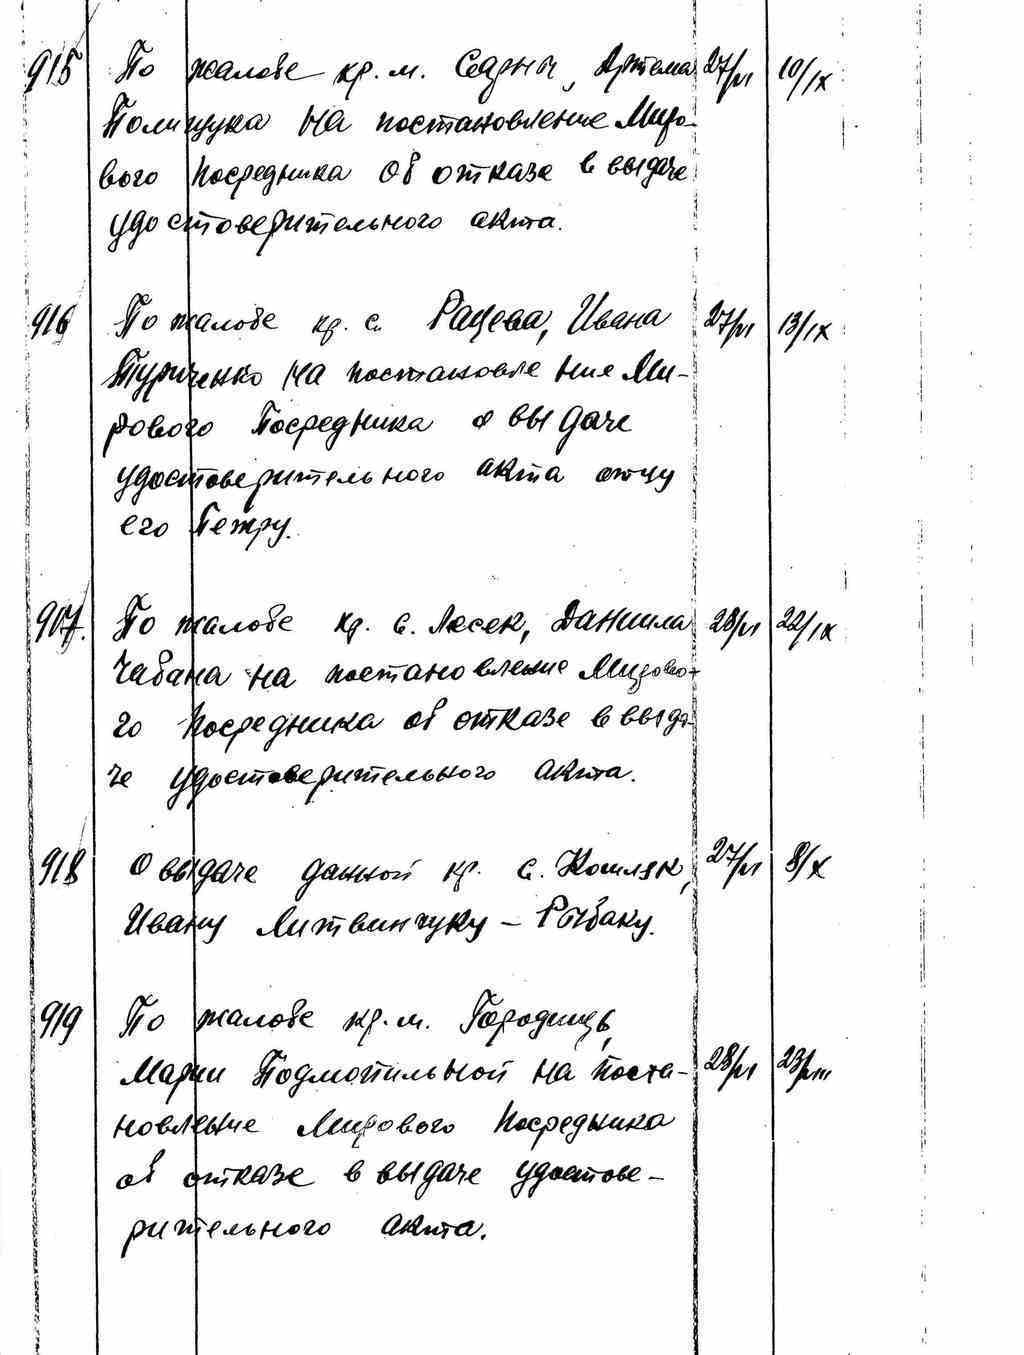 915 По жалобе кр. м. Седрыч, Артема 27/VI 10/IX
Полищука на постановление Миро-
вого Посредника об отказе в выдаче
удостоверительного акта.
916 По жалобе кр. с. Рацева, Ивана 27/VI 13/IX
Туриченко на постановление Ми-
рового Посредника о выдаче
удостоверительного акта отцу
его Петру.
907. По жалобе кр. с. Лесек, Даниила 28/VI 22/IX
Чабана на постановление Мирово-
го Посредника об отказе в выда-
че удостоверительного акта.
918 О выдаче данной кр. с. Кошляк, 27/VI 8/X
Ивану Литвинчуку - Рыбаку.
919 По жалобе кр. м. Городищь,
Марии Подмогильной на поста- 28/VI 23/VIII
новление Мирового Посредника
об отказе в выдаче удостове-
рительного акта.